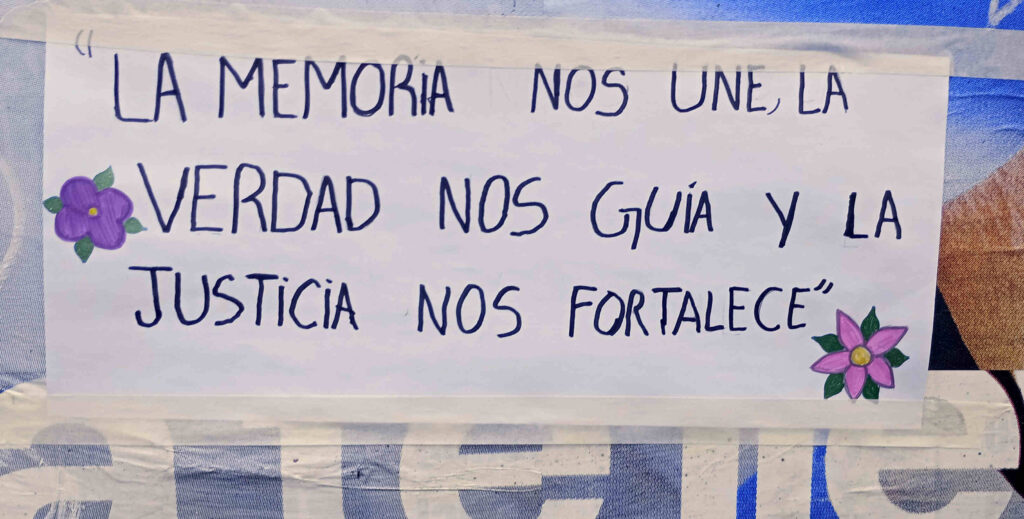 "LA MEMORiA NOS UNE, LA
VERDAD NOS GUÍA Y LA
JUSTiCiA NOS FORTALECE"